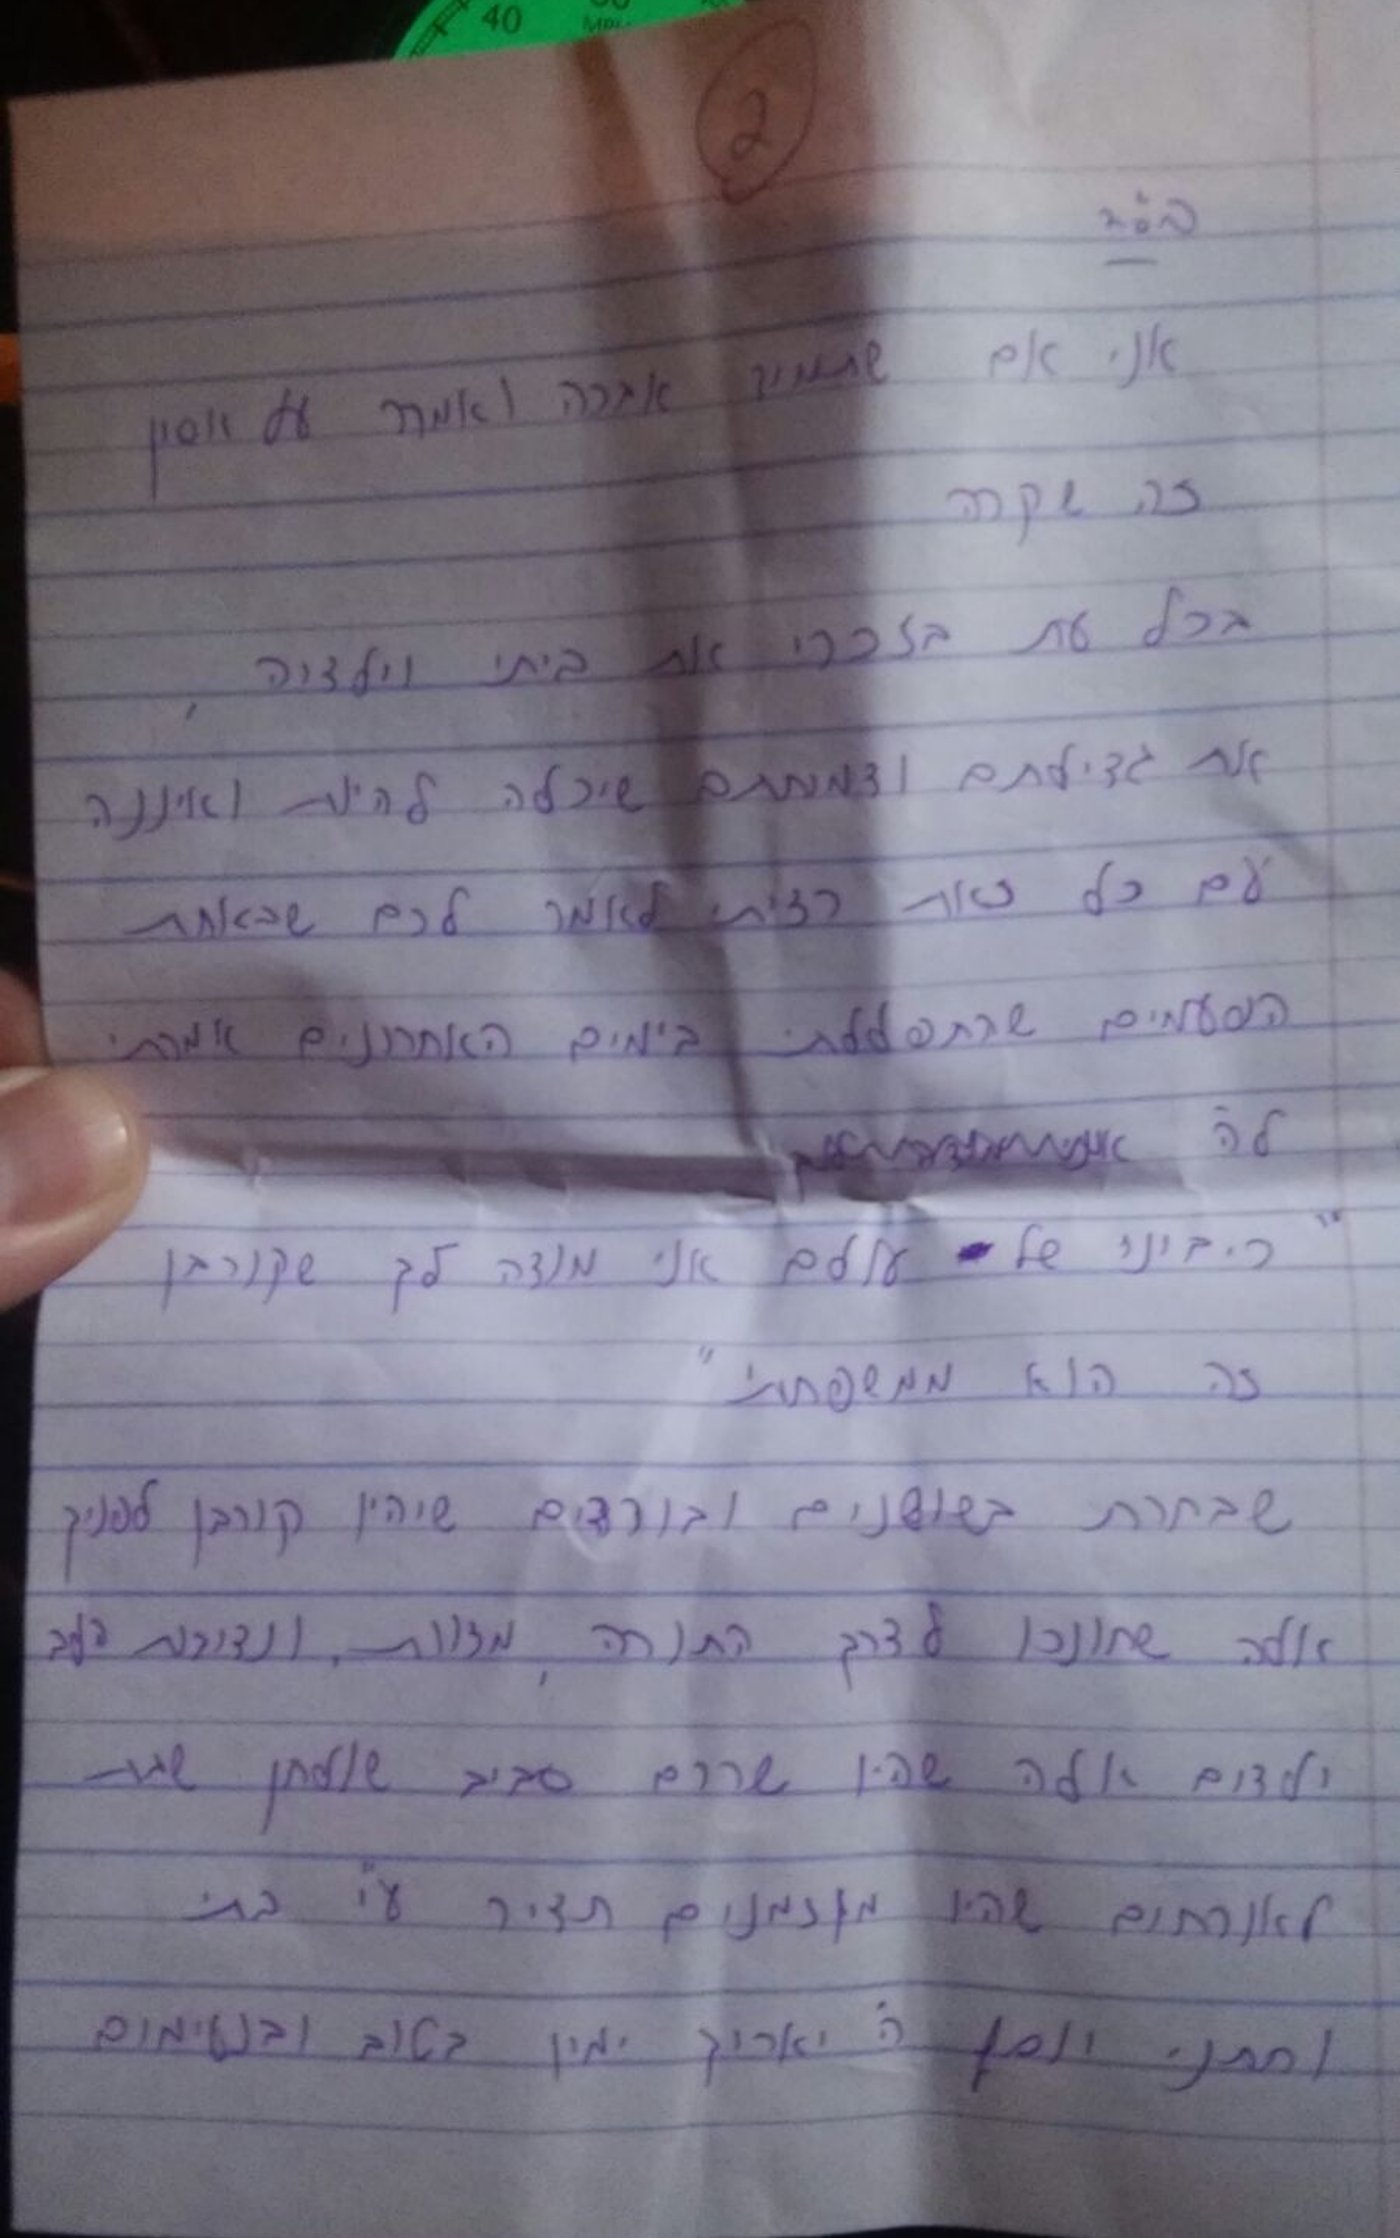 40
2
בס"ד
אני אם שתמיד אבכה ואמרר על אסון
זה שקרה
בכל עת בזכרי את ביתי וילדיה,
את גדילתם ודמותם שיכלה להיות ואיננה
עם כל זאת רציתי לאמר לכם שבאחת
הפעמים שהתפללתי בימים האחרונים אמרתי
לה'
"ריבונו של עולם אני מודה לך שקורבן
זה הוא ממשפחתי"
שבחרת בשושנים ובורדים שיהיו קורבן לפניך
אלה שחונכו לדרך התורה, מצוות, ונדיבות הלב
ילדים אלה שהיו שרים סביב שולחן שבת
לאורחים שהיו מוזמנים תדיר ע"י בתי
וחתני יוסף ה' יאריך ימיו בטוב ובנעימים